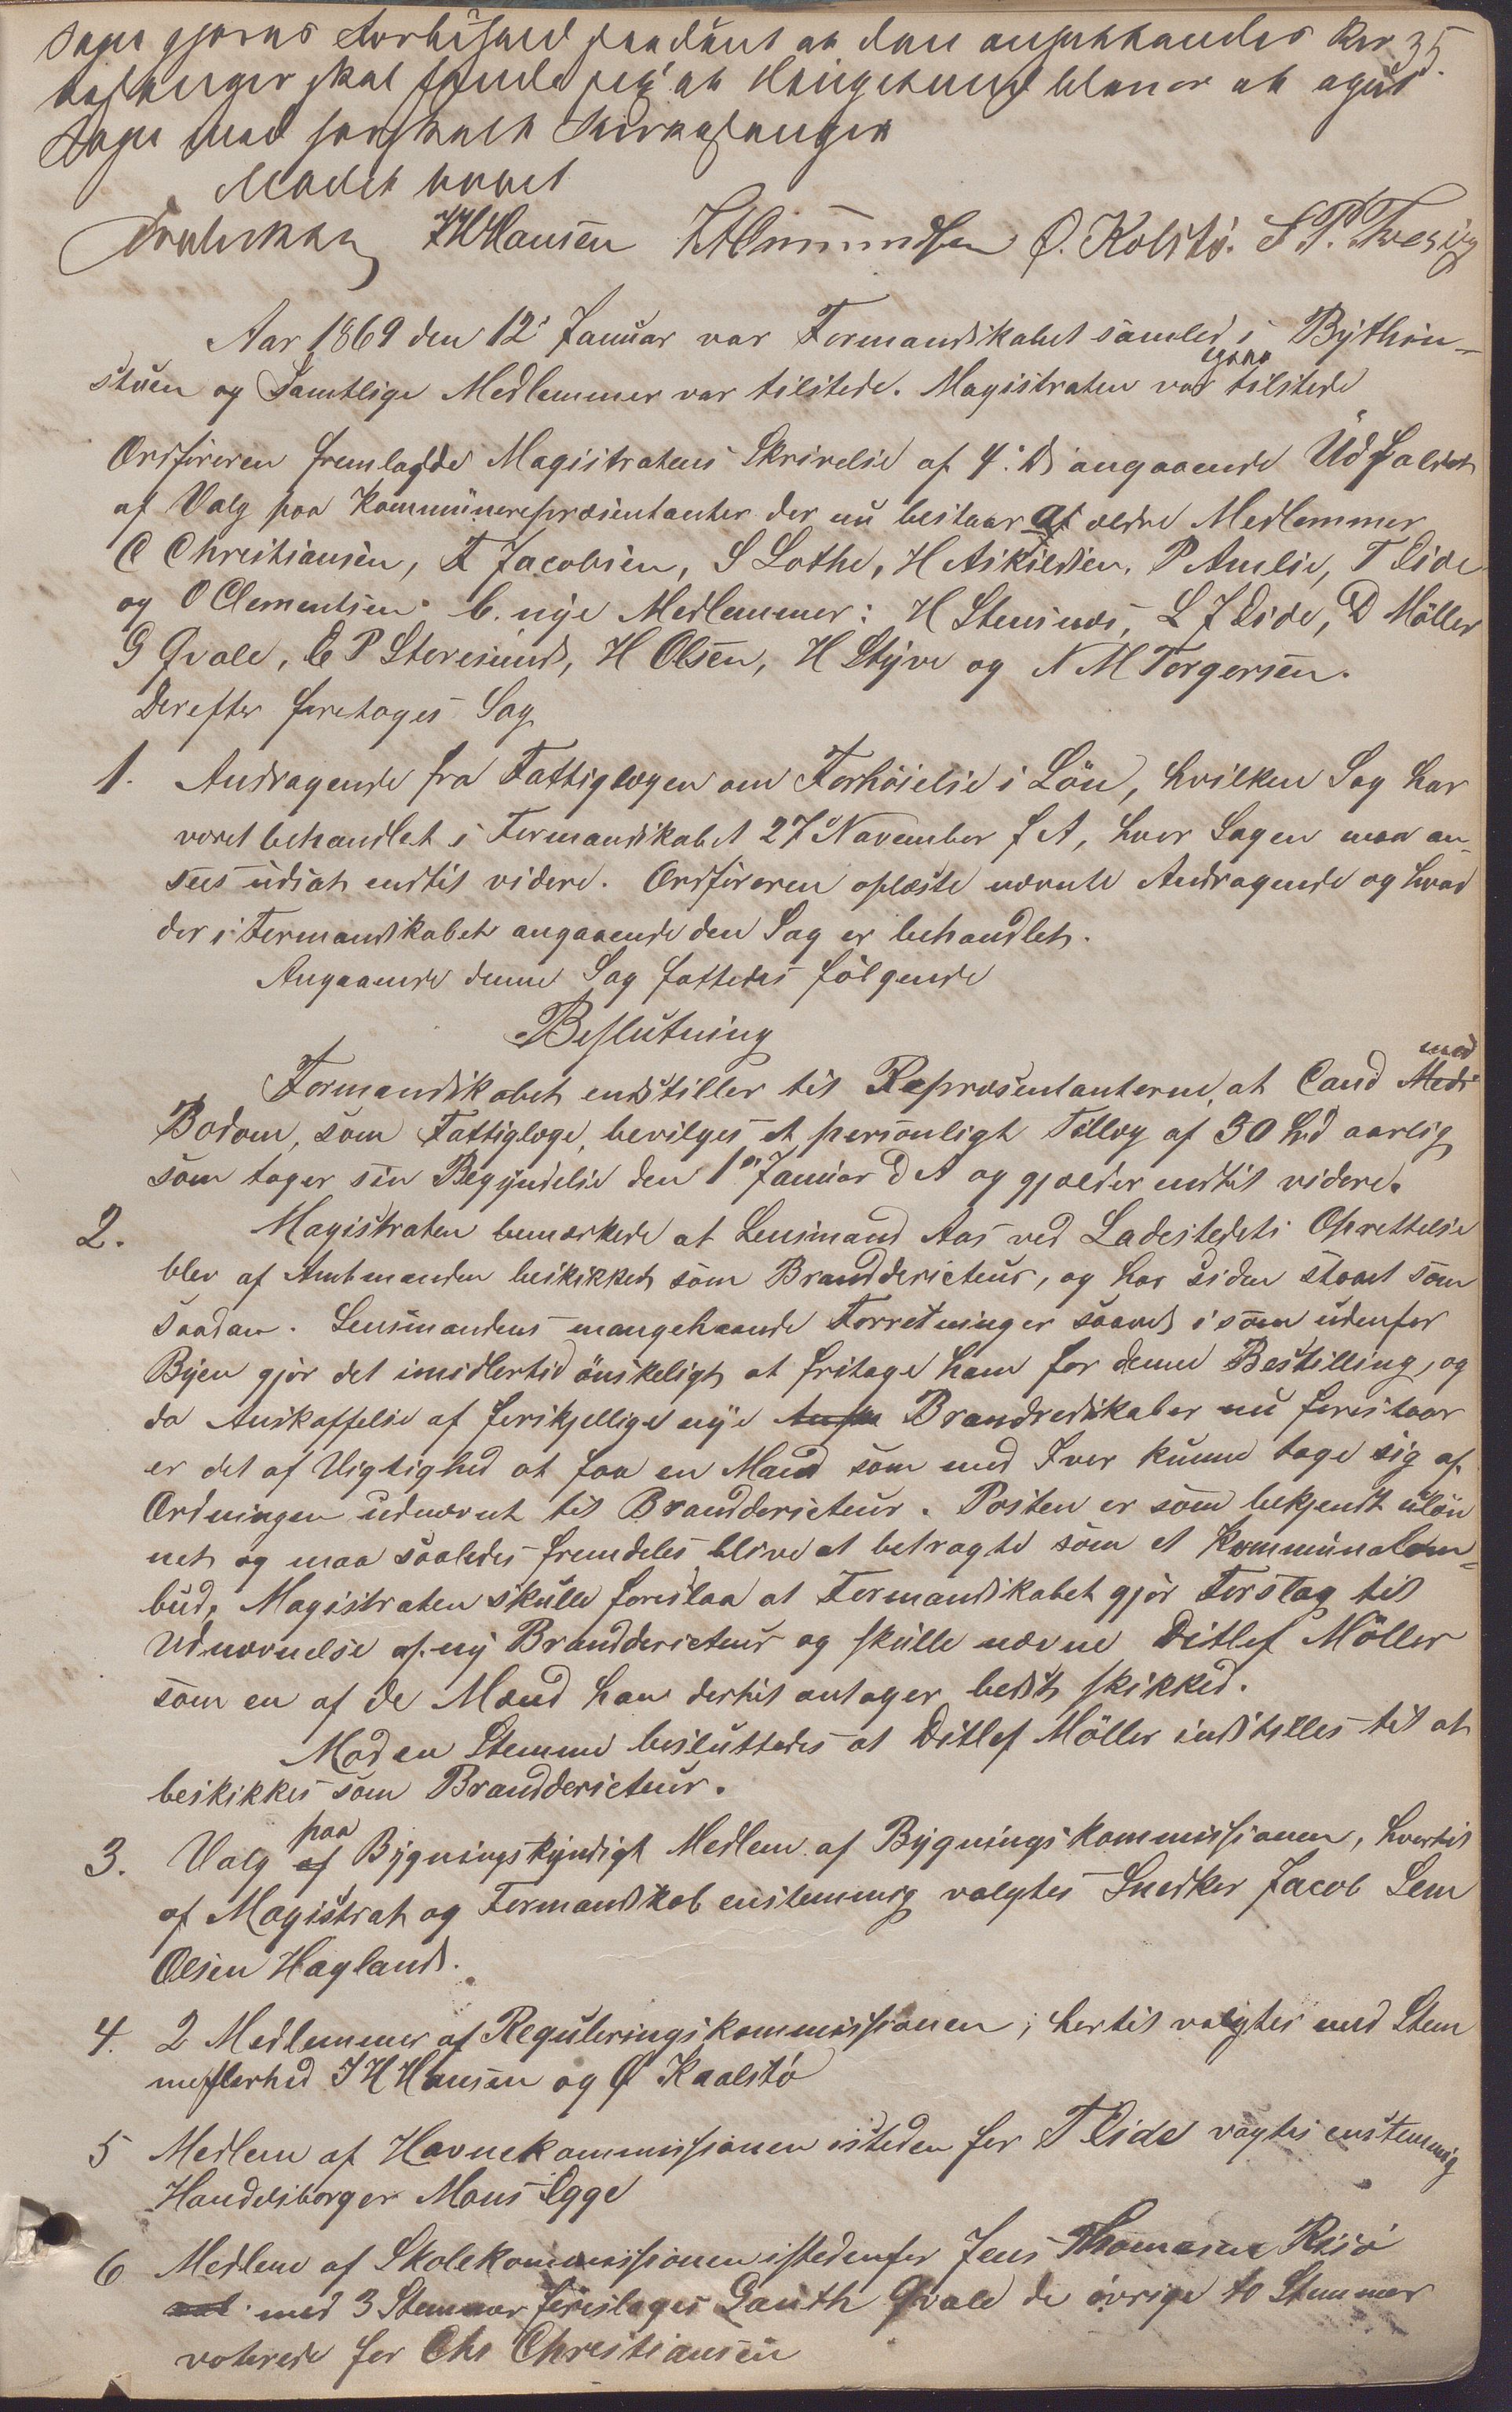 35.
Sage gjøres
skal
Sage med
Mødet hævet
JHHansen Ø. Kolstø. S P. Tveseig
Aar 1869 den 12te Januar var Formandskabet samled i Bythin-
stuen og Samtlige Medlemmer var tilstede. Magistraten var ogsaa tilstede
Ordføreren fremlagde Magistratens Skrivelse af 4. Ds angaaende Udfaldet
af Valg paa Kommunerepræsentanter der nu bestaar af ældre Medlemmer
C Christiansen, T Jacobsen, S Lothe, H Askildsen, P Amlie, T Eide
og O Clementsen. b. nye Medlemmer: H Stensnæs, L J Eide, D Möller
G Qvale, E P Storesund, H Olsen, H Styve og N M Torgersen.
Derefter foretoges Sag
1. Andragende fra Fattiglægen om Forhöielse i Lön, hvilken Sag har
været behandlet i Formandskabet 27 November f A, hvor Sagen maa an-
sees udsat indtil videre. Ordføreren oplæste nævnte Andragende og hvad
der i Formandskabet angaaende den Sag er behandlet.
Angaaende denne Sag fattedes fölgende
Beslutning
Formandskabet indstiller til Repræsentanterne, at Cand med
Bodom, som Fattiglæge, bevilges et personligt Tillæg af 30 Spd aarlig
som tager sin Begyndelse den 1ste Januar d A og gjælder indtil videre.
2. Magistraten bemærkede at Lensmand Aas ved Ladestedets Oprettelse
blev af Amtmanden beskikket som Branddericteur, og har siden staaet som
saadan. Lensmandens mangehaande Forretninger saavel i som udenfor
Byen gjör det imidlertid önskeligt at fritage ham for denne Bestilling, og
da Anskaffelse af forskjellige nye Brandredskaber nu forestaar
er det af Vigtighed at faa en Mand som med Iver kunne tage sig af
Ordningen udnævnt til Branddericteur. Posten er som bekjendt ulön
net og maa saaledes fremdeles blive at betragte som et Kommunalom-
bud, Magistraten skulle foreslaa at Formandskabet gjör Forslag til
Udnævnelse af ny Branddericteur og skulle nævne Ditlef Möller
som en af de Mænd han dertil antager bedst skikked.
Mod en Stemme besluttedes at Ditlef Möller indstilles til at
beskikkes som Branddericteur.
3. Valg paa Bygningskyndigt Medlem af Bygningskommissionen, hvortil
af Magistrat og Formandskab enstemmig valgtes Snedker Jacob Sem
Olsen Hagland.
4. 2 Medlemmer af Reguleringskommissionen, hertil valgtes med Stem
meflerhed J H Hansen og Ø Kaalstö
5 Medlem af Havnekommissionen isteden for T Eide valgtes enstemmig
Handelsborger Mons Egge
6 Medlem af Skolekommissionen istedenfor Jens Thomasen Risö
med 3 Stemmer foreslages Gauth Qvale de övrige to Stemmer
voterede for Chr Christiansen